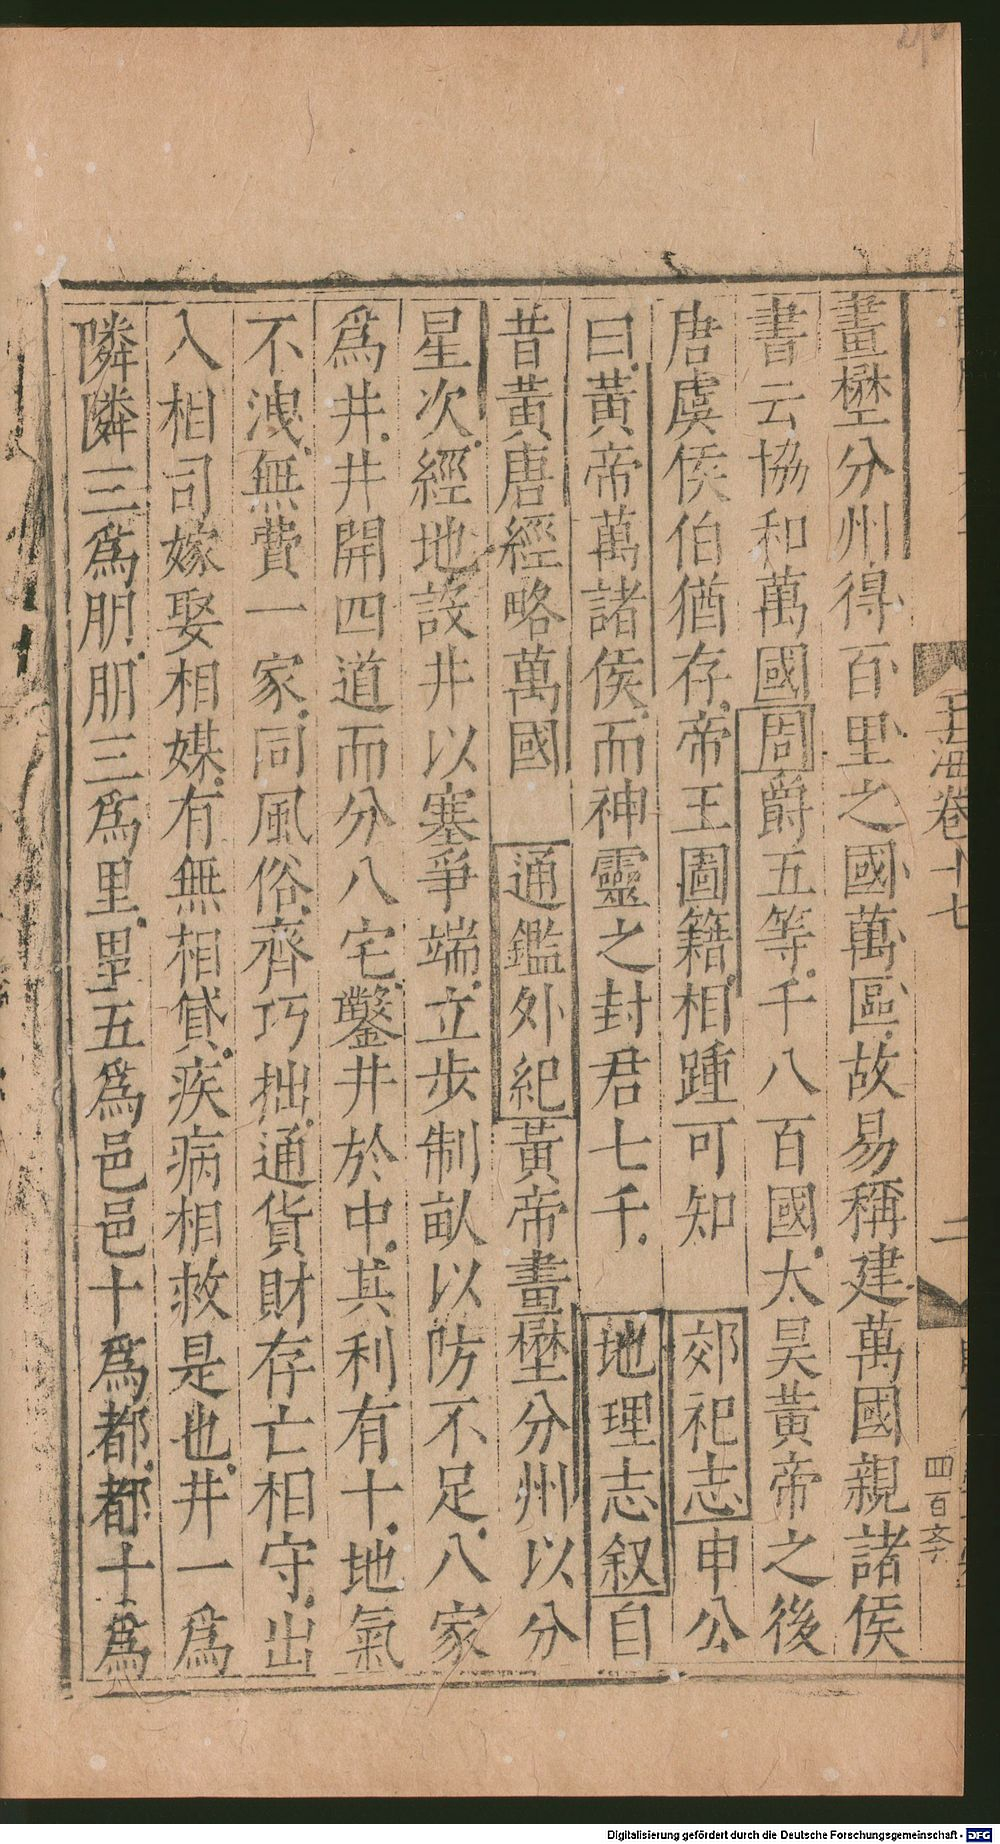 畫壄分州得百里之國萬區故易稱建萬國親諸侯
書云協和萬國周爵五等千八百國太昊黃帝之後
唐虞侯伯猶存帝王圖籍相踵可知 郊祀志申公
曰黃帝萬諸侯而神靈之封君七千 地理志叙自
昔黃唐經略萬國 通鑑外紀黃帝畫壄分州以分
星次經地設井以塞爭端立步制畝以防不足八家
為井井開四道而分八宅鑿井於中其利有十地氣
不洩無費一家同風俗齊巧拙通貨財存亡相守出
入相司嫁娶相媒有無相貸疾病相救是也井一為
隣隣三為朋朋三為里里五為邑邑十為都都十為
玉海卷十七
二
四百
Digitalisierung gefördert durch die Deutsche Forschungsgemeinschaft - DFG